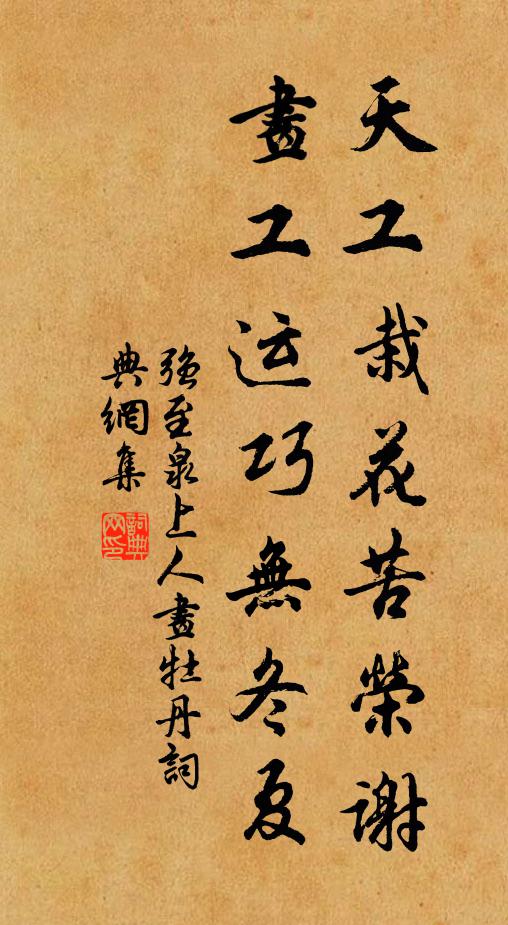 天工栽花苦榮謝
畫工运巧無冬夏
强至泉上人畫牡丹詞
典網集
詞典网印